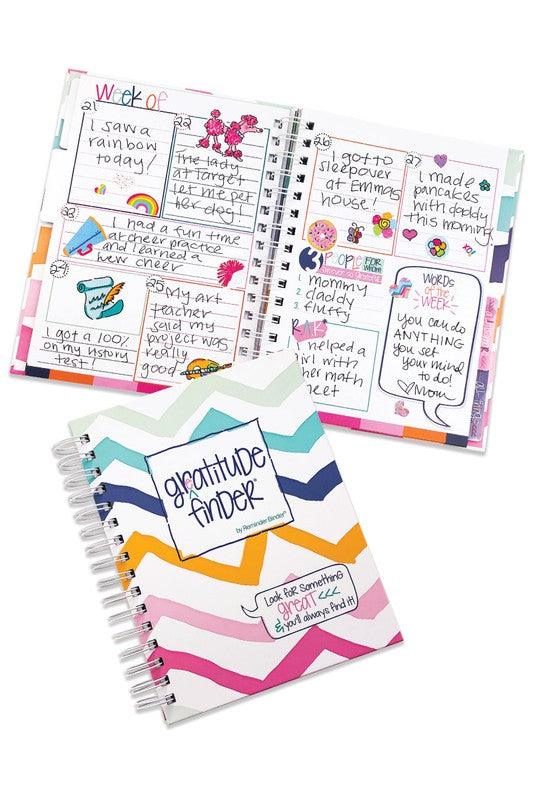 Week of
21
I saw a
rainbow
today!
22
the lady
at target
let me pet
her dog!
23
I had a fun time
at cheer practice
and learned a
new cheer
24
I got a 100%
on my history
test!
25
My art
teacher
said my
project was
really
good
26
I got to
sleepover
at Emmas
house!
27
I made
pancakes
with daddy
this morning
3 PEOPLE FOR WHOM
1. mommy
2. daddy
3. fluffy
RAK
I helped a
girl with
her math
sheet
WORDS
of the
WEEK
you can do
ANYTHING
you set
your mind
to do!
Mom
gratitude
finder®
by Reminder Binder®
Look for something
great <<<
& you'll always find it!